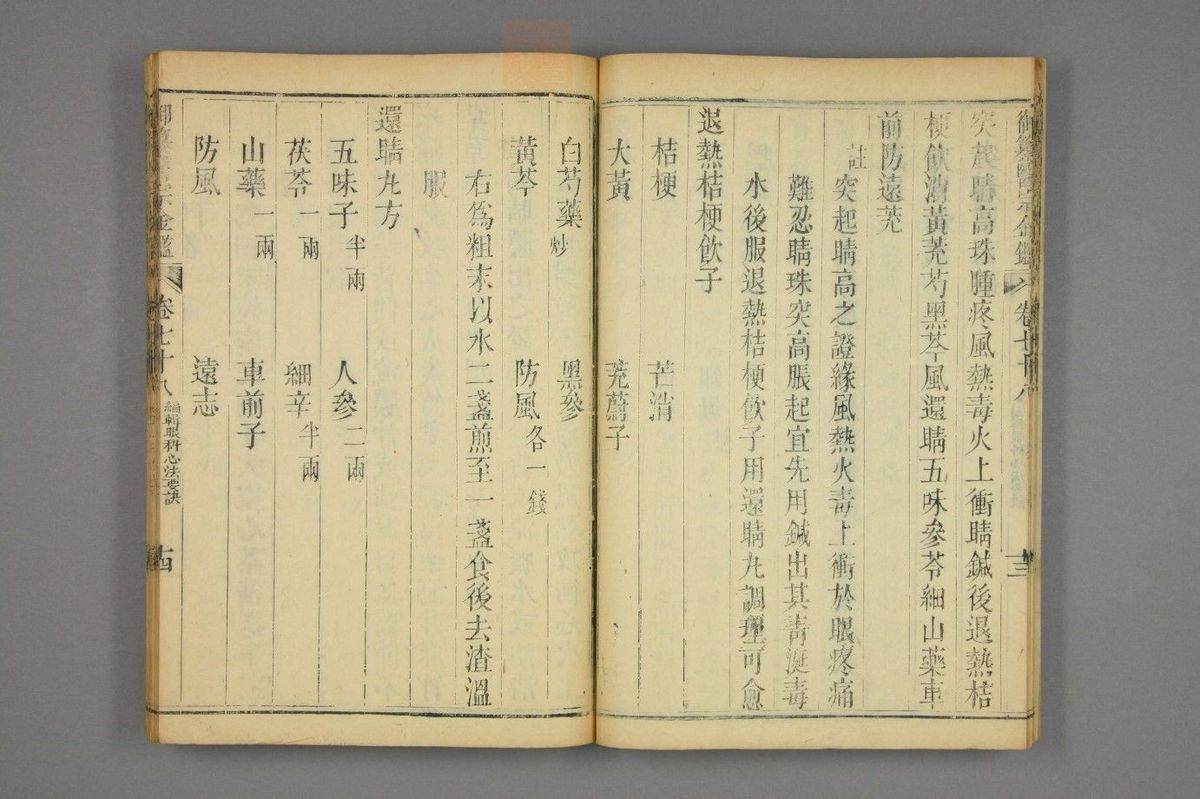 御纂醫宗金鑑 卷七十八
突起睛高珠腫疼風熱毒火上衝睛鍼後退熱桔
梗飲消黃茺芍黑芩風還睛五味參苓細山藥車
前防遠茺
註突起睛高之證緣風熱火毒上衝於眼疼痛
難忍睛珠突高脹起宜先用鍼出其青涎毒
水後服退熱桔梗飲子用還睛丸調理可愈
退熱桔梗飲子
桔梗 芒消
大黃 茺蔚子
白芍藥炒 黑參
黃芩 防風各一錢
右爲粗末以水二盞煎至一盞食後去渣溫
服
還睛丸方
五味子半兩 人參二兩
茯苓一兩 細辛半兩
山藥一兩 車前子
防風 遠志
金鑑 卷七十八 編輯眼科心法要訣 十四